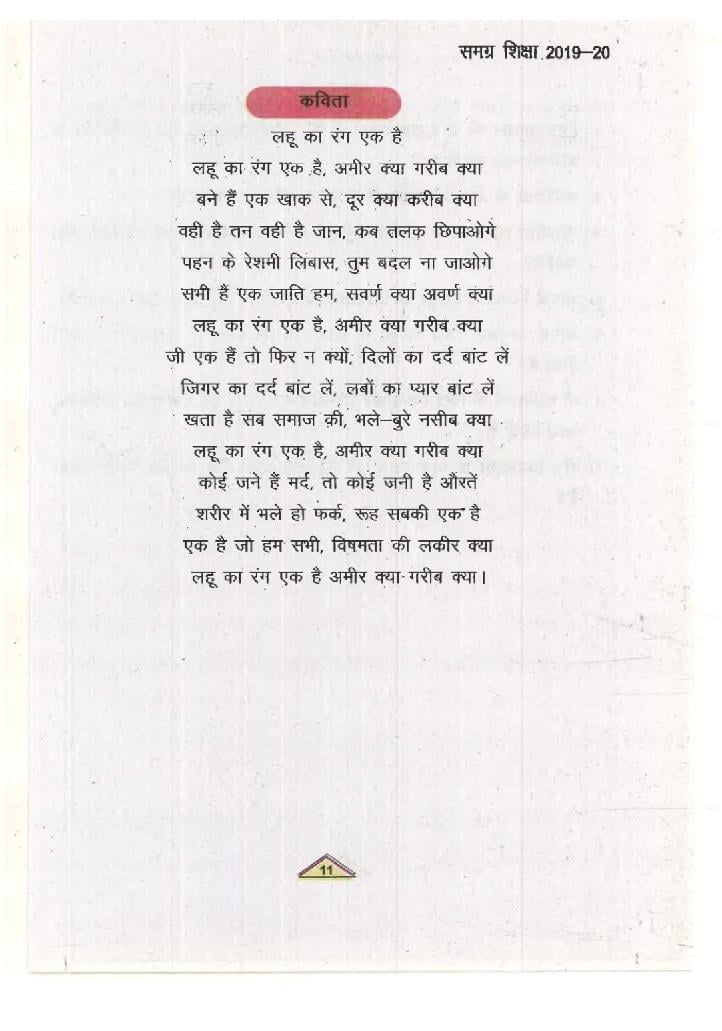 समग्र शिक्षा 2019–20
कविता
लहू का रंग एक है
लहू का रंग एक है, अमीर क्या गरीब क्या
बने हैं एक खाक से, दूर क्या करीब क्या
वही है तन वही है जान, कब तलक छिपाओगे
पहन के रेशमी लिबास, तुम बदल ना जाओगे
सभी हैं एक जाति हम, सवर्ण क्या अवर्ण क्या
लहू का रंग एक है, अमीर क्या गरीब क्या
जी एक हैं तो फिर न क्यों, दिलों का दर्द बांट लें
जिगर का दर्द बांट लें, लबों का प्यार बांट लें
खता है सब समाज की, भले–बुरे नसीब क्या
लहू का रंग एक है, अमीर क्या गरीब क्या
कोई जने हैं मर्द, तो कोई जनी है औरतें
शरीर में भले हो फर्क, रूह सबकी एक है
एक है जो हम सभी, विषमता की लकीर क्या
लहू का रंग एक है अमीर क्या गरीब क्या।
11